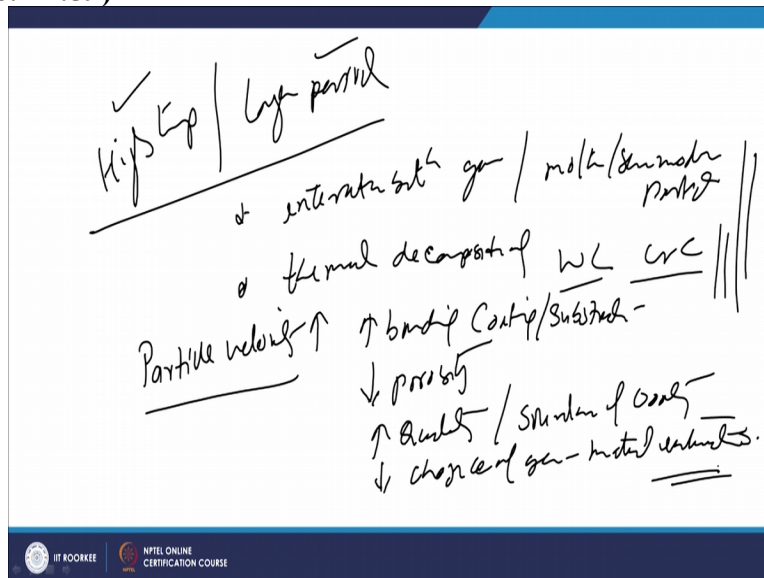 High temp / longer period
interaction both gas / molten/semi molten particle
thermal decomposition of WC CrC
Particle velocity ↑ ↑ bonding Coating/Substrate
↓ porosity
↑ Quality / of
↓ chance of gas - metal
IIT ROORKEE
NPTEL ONLINE
CERTIFICATION COURSE